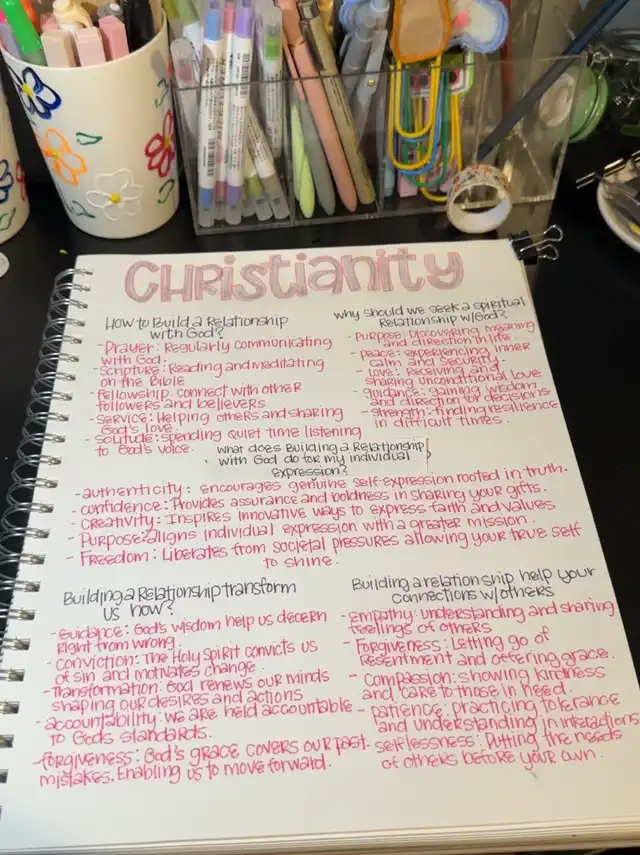 Christianity
How to Build a Relationship
with God?
- Prayer: Regularly communicating
with God.
- Scripture: Reading and meditating
on the Bible
- fellowship: connect with other
followers and believers
- service: Helping others and sharing
God's love.
- solitude: spending quiet time listening
to God's voice.
why should we seek a spiritual
Relationship w/God?
- Purpose: Discovering meaning
and direction in life
- peace: experiencing inner
calm and security
- Love: Receiving and
sharing unconditional love
- guidance: gaining wisdom
and direction for decisions
- strength: finding resilience
in difficult times.
what does Building a Relationship
with God do for my individual
expression?
- authenticity: encourages genuine self-expression rooted in truth.
- confidence: Provides assurance and boldness in sharing your gifts.
- creativity: Inspires innovative ways to express faith and values
- Purpose: Aligns individual expression with a greater mission.
- Freedom: Liberates from societal pressures allowing your true self
to shine.
Building a Relationship transform
us how?
- Guidance: God's wisdom help us decern
right from wrong.
- conviction: The Holy Spirit convicts us
of sin and motivates change.
- Transformation: God renews our minds
shaping our desires and actions
- accountability: we are held accountable
to God's standards.
- forgiveness: God's grace covers our past
mistakes. Enabling us to move forward.
Building a relationship help your
connections w/others
- Empathy: understanding and sharing
feelings of others
- Forgiveness: Letting go of
resentment and offering grace.
- Compassion: showing kindness
and care to those in need.
- Patience: practicing tolerance
and understanding in interactions
- selflessness: Putting the needs
of others before your own.